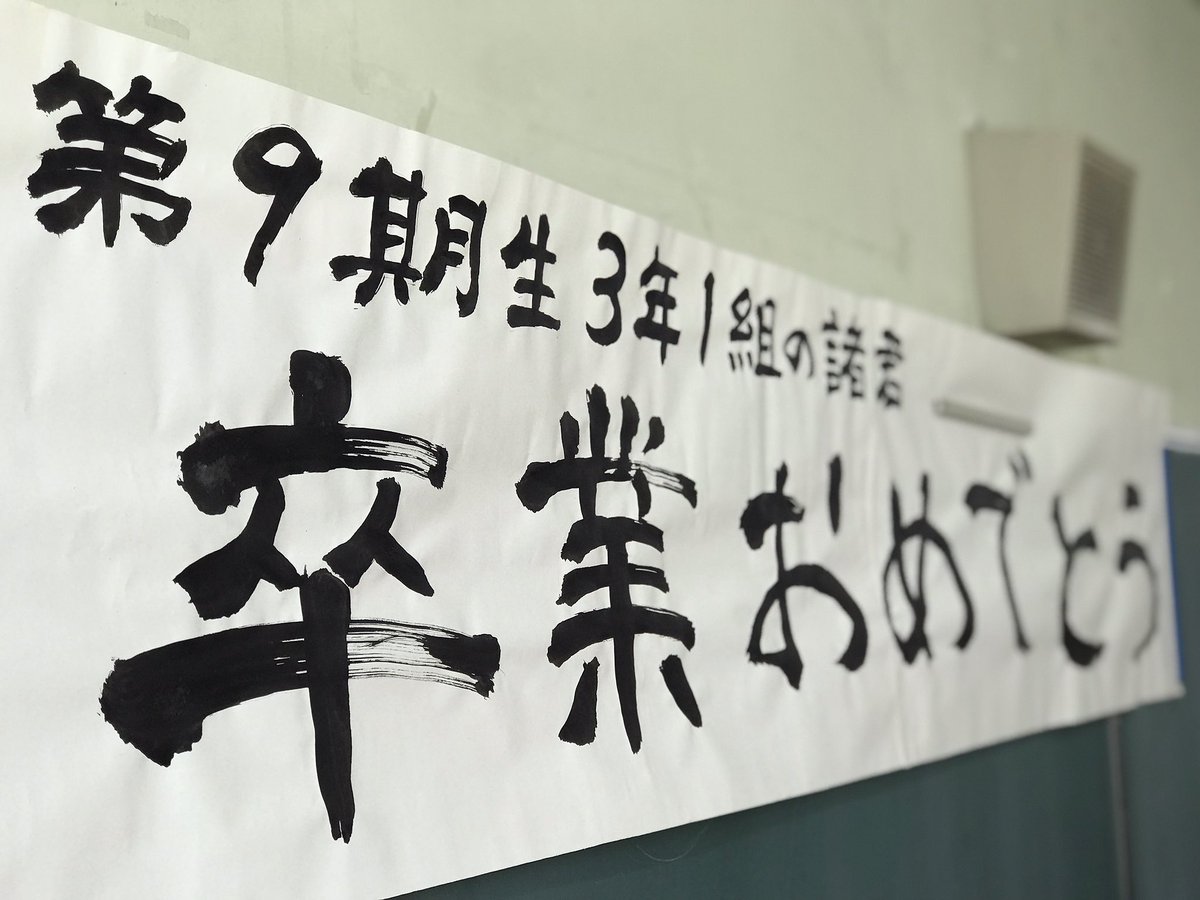 第9期生3年1組の諸君
卒業おめでとう